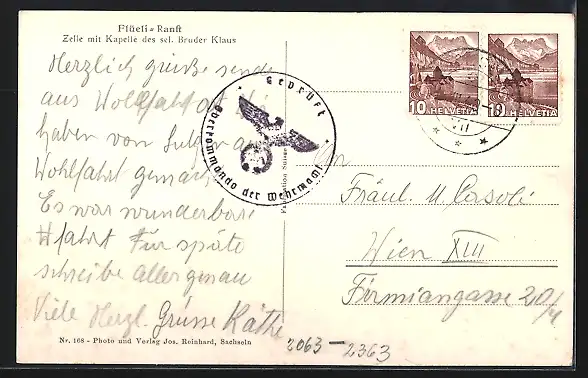 Flüeli-Ranft
Zelle mit Kapelle des sel. Bruder Klaus
Herzlich grüsse sende
aus Wohlfahrt
haben von
Wohlfahrt gemacht
Es war wunderbare
fahrt Für später
schreibe aller genau
Viele Herzl. Grüsse Käthe
Nr. 108 - Photo und Verlag Jos. Reinhard, Sachseln
2063-2363
Geprüft
Oberkommando der Wehrmacht
10 HELVETIA
10 HELVETIA
VII
An
Fräul. M. Casoli
Wien XIII
Firmiangasse 20/4